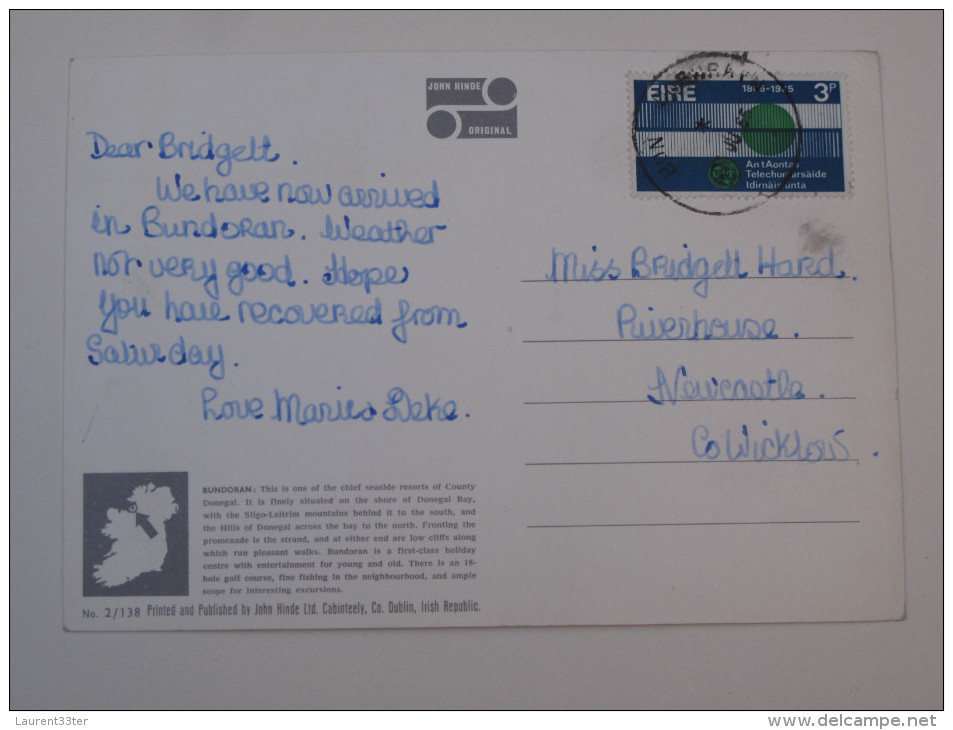 JOHN HINDE
ORIGINAL
EIRE 1865-1965 3P
An tAontas
Idirnáisiúnta
Dear Bridgett.
We have now arrived
in Bundoran. Weather
not very good. Hope
you have recovered from
Saturday.
Love Marie
Miss Bridgett Hard.
Riverhouse.
Newcastle.
Co Wicklow.
BUNDORAN: This is one of the chief seaside resorts of County
Donegal. It is finely situated on the shore of Donegal Bay,
with the Sligo-Leitrim mountains behind it to the south, and
the Hills of Donegal across the bay to the north. Fronting the
promenade is the strand, and at either end are low cliffs along
which run pleasant walks. Bundoran is a first-class holiday
centre with entertainment for young and old. There is an 18-
hole golf course, fine fishing in the neighbourhood, and ample
scope for interesting excursions.
No. 2/138 Printed and Published by John Hinde Ltd. Cabinteely, Co. Dublin, Irish Republic.
Laurent33ter
www.delcampe.net